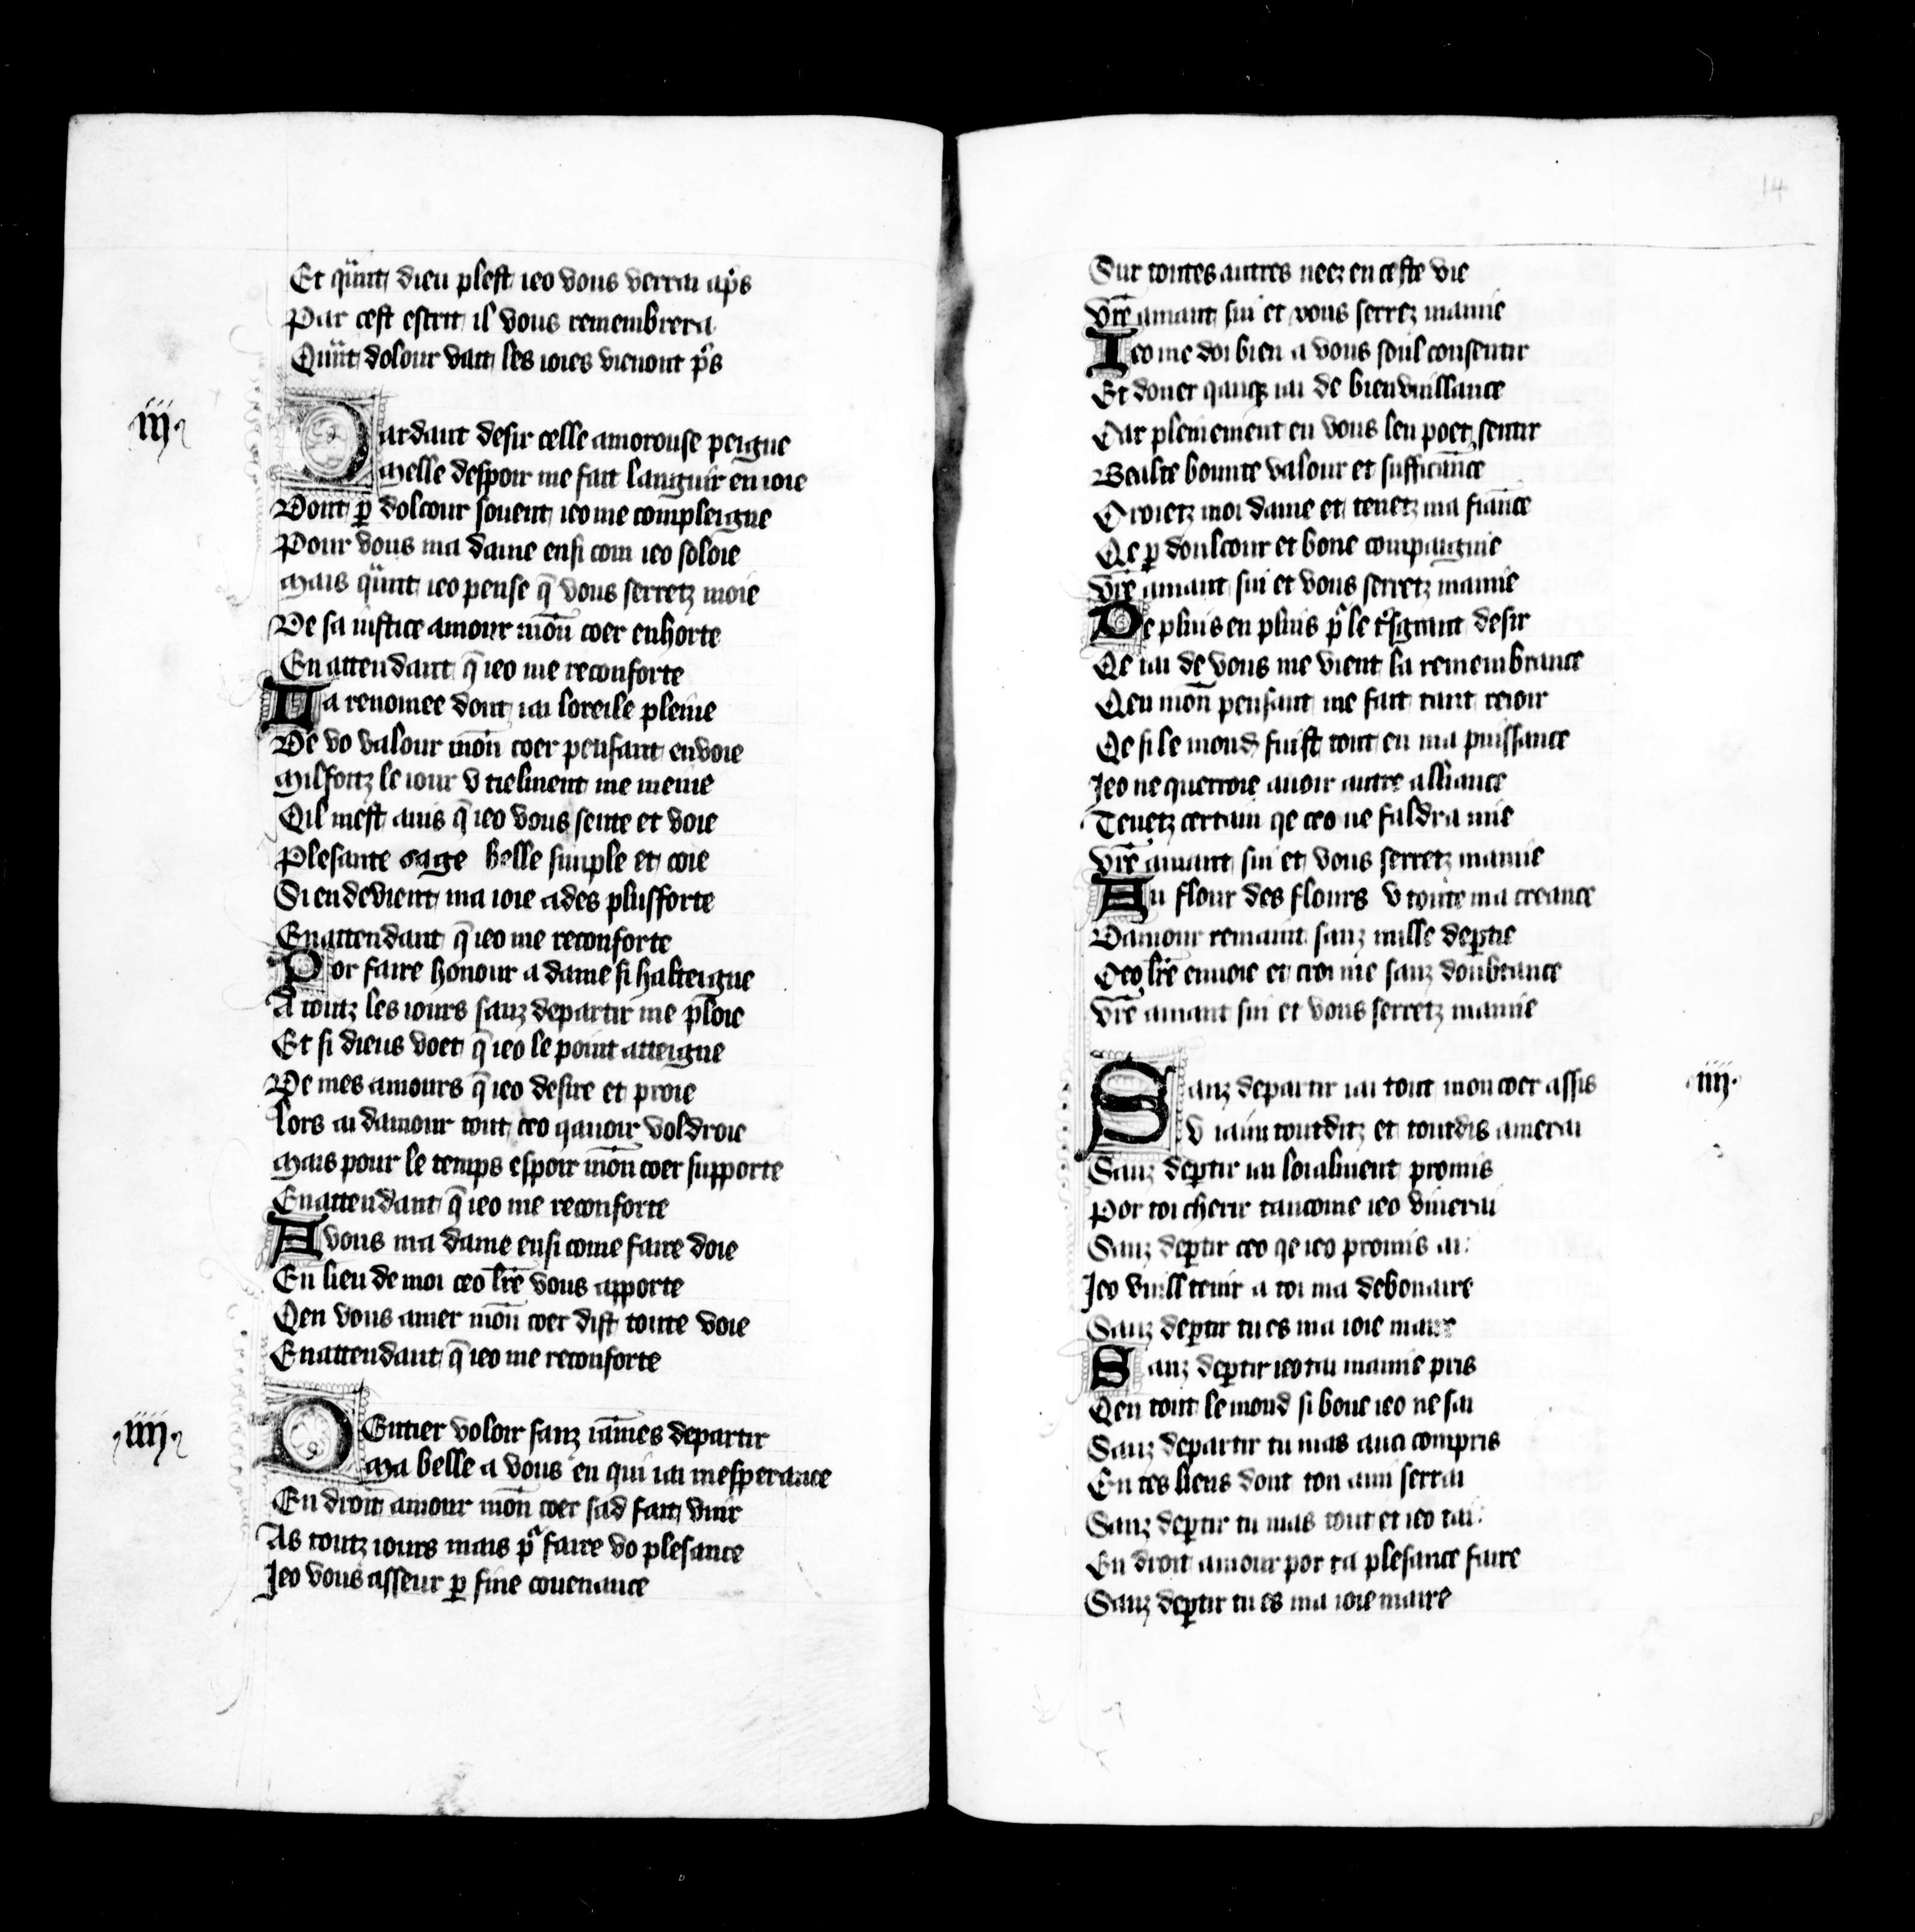 Et qᵃunt dieu plest ieo vous verrai apˢ
Par cest escrit il vous remembrera
Qᵃunt dolour vait les ioies vienont pˢs
iij
Dardant desir celle amorouse peigne
Melle despoir me fait languir en ioie
Dont ꝑ dolcour souent ieo me compleigne
Pour vous ma dame ensi com ieo soloie
Mais qᵃunt ieo pense q̄ vous serretz moie
De sa iustice amour moū coer enhorte
En attendant q̄ ieo me reconforte
La renomee dont iai loreile pleine
De vo valour moū coer pensant envoie
Milfoitz le iour v tielment me meine
Qil mest auis q̄ ieo vous sente et voie
Plesante sage belle simple et coie
Si en devient ma ioie ades plus forte
En attendant q̄ ieo me reconforte
Por faire honour a dame si halteigne
A toutz les iours sanz departir me ploie
Et si dieus voet q̄ ieo le point atteigne
De mes amours q̄ ieo desire et proie
Lors ai damour tout ceo qauoir voldroie
Mais pour le temps espoir moū coer supporte
En attendant q̄ ieo me reconforte
A vous ma dame ensi come faire doie
En lieu de moi ceo lr̄e vous apporte
Qen vous amer moū coer dist toute voie
En attendant q̄ ieo me reconforte
iiij
DEntier voloir sanz iāmes departir
Ma belle a vous en qui iai mesperance
En droit amour moū coer sad fait vnir
As toutz iours mais pᵃ faire vo plesance
Jeo vous asseur ꝑ fine couenance
14
Sur toutes autres neez en ceste vie
Vr̄e amant sui et vous serretz mamie
Ieo me doi bien a vous soul consentir
Et doner qanqꝫ iai de bienvuillance
Car pleinement en vous len poet sentir
Bealte bounte valour et sufficāce
Croietz moi dame et tenetz ma fiāce
Qe ꝑ doulcour et bone compaignie
Vr̄e amant sui et vous serretz mamie
De pluis en pluis pᵃ le rˢsignant desir
Qe iai de vous me vient la remembrance
Qen moū pensant me fait tant reioir
Qe si le mond fuist tout en ma puissance
Jeo ne querroie auoir autre alliance
Tenetz certain qe ceo ne faldra mie
Vr̄e amant sui et vous serretz mamie
Au flour des flours v toute ma creance
Damour remaint sanz nulle deꝑtie
Ceo lr̄e envoie et croi me sanz doubtance
Vr̄e amant sui et vous serretz mamie
iiij
Sanz departir iai tout mon coer assis
V iaim toutditz et toutdis amerai
Sanz deꝑtir iai loialment promis
Por toi cherir tancome ieo viuerai
Sanz deꝑtir ceo qe ieo promis ai
Jeo vuill tenir a toi ma debonaire
Sanz deꝑtir tu es ma ioie maire
Sanz deꝑtir ieo tai mamie pris
Qen tout le mond si bone ieo ne sai
Sanz departir tu mas auci compris
En tes liens dont ton ami serrai
Sanz deꝑtir tu mas tout et ieo tai
En droit amour por ta plesance faire
Sanz deꝑtir tu es ma ioie maire